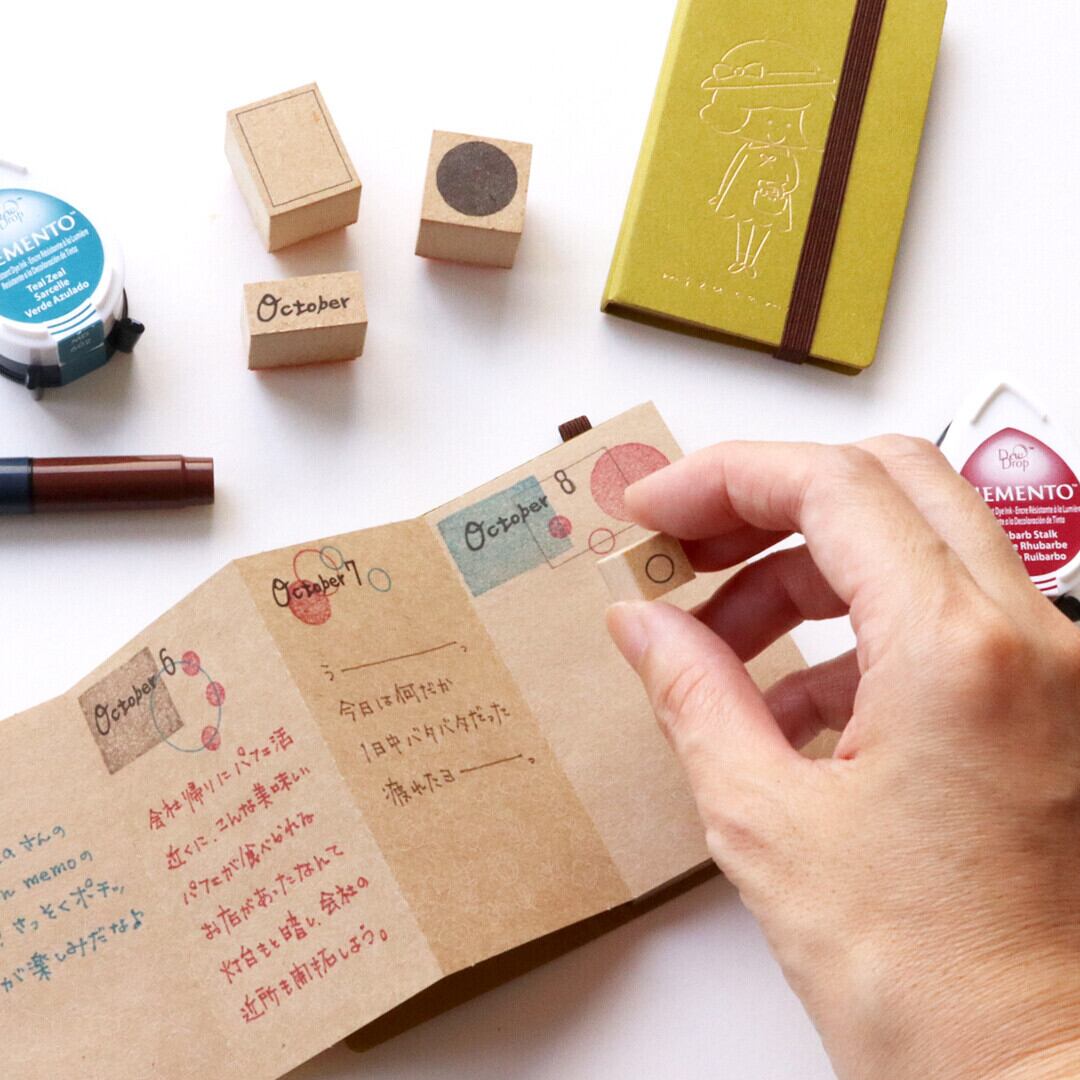 Dew
Drop
MEMENTO™
Encre Résistante à la Lumière
Resistente a la Decoloración de Tinta
Teal Zeal
Sarcelle
Verde Azulado
October
mizutama
Dew
Drop
MEMENTO™
Dye Ink · Encre Résistante à la Lumière
Resistente a la Decoloración de Tinta
Rhubarb Stalk
Rhubarbe
Ruibarbo
さんの
memoの
さっそくポチッ
が楽しみだなよ
October 6
会社帰りにパフェ活
近くに、こんな美味しい
パフェが食べられる
お店があったなんて
灯台もと暗し、会社の
近所も開拓しよう。
October 7
う——、
今日は何だか
1日中バタバタだった
疲れたヨ——。
October 8